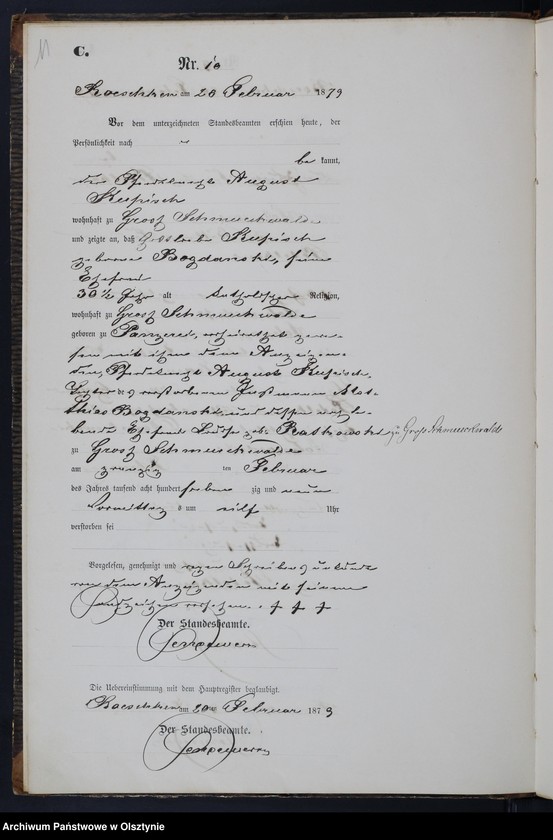 C.
Nr. 10
Koeschken am 20 Februar 1879
Vor dem unterzeichneten Standesbeamten erschien heute, der
Persönlichkeit nach
be kannt,
der Pferdeknecht August
Kupisch
wohnhaft zu Groß Schmueckwalde
und zeigte an, daß Kupisch
geborne Bogdanski, seine
Ehefrau
30 1/2 Jahr alt katholischer Religion,
wohnhaft zu Groß Schmueckwalde
geboren zu verheirathet gewe-
sen mit ihm dem Anzeigen-
den Pferdeknecht August Kupisch,
Tochter des verstorbenen Mat-
thias Bogdanski und dessen noch le-
bende Ehefrau Louise geb. zu Groß Schmueckwalde
zu Groß Schmueckwalde
am zwanzig ten Februar
des Jahres tausend acht hundert sieben zig und neun
Vormittags um eilf Uhr
verstorben sei
Vorgelesen, genehmigt und wegen Schreibens unkunde
von dem Anzeigenden mit seinem
Handzeichen versehen. + + +
Der Standesbeamte.
Die Uebereinstimmung mit dem Hauptregister beglaubigt.
Koeschken am 20 ten Februar 1879
Der Standesbeamte.
Archiwum Państwowe w Olsztynie